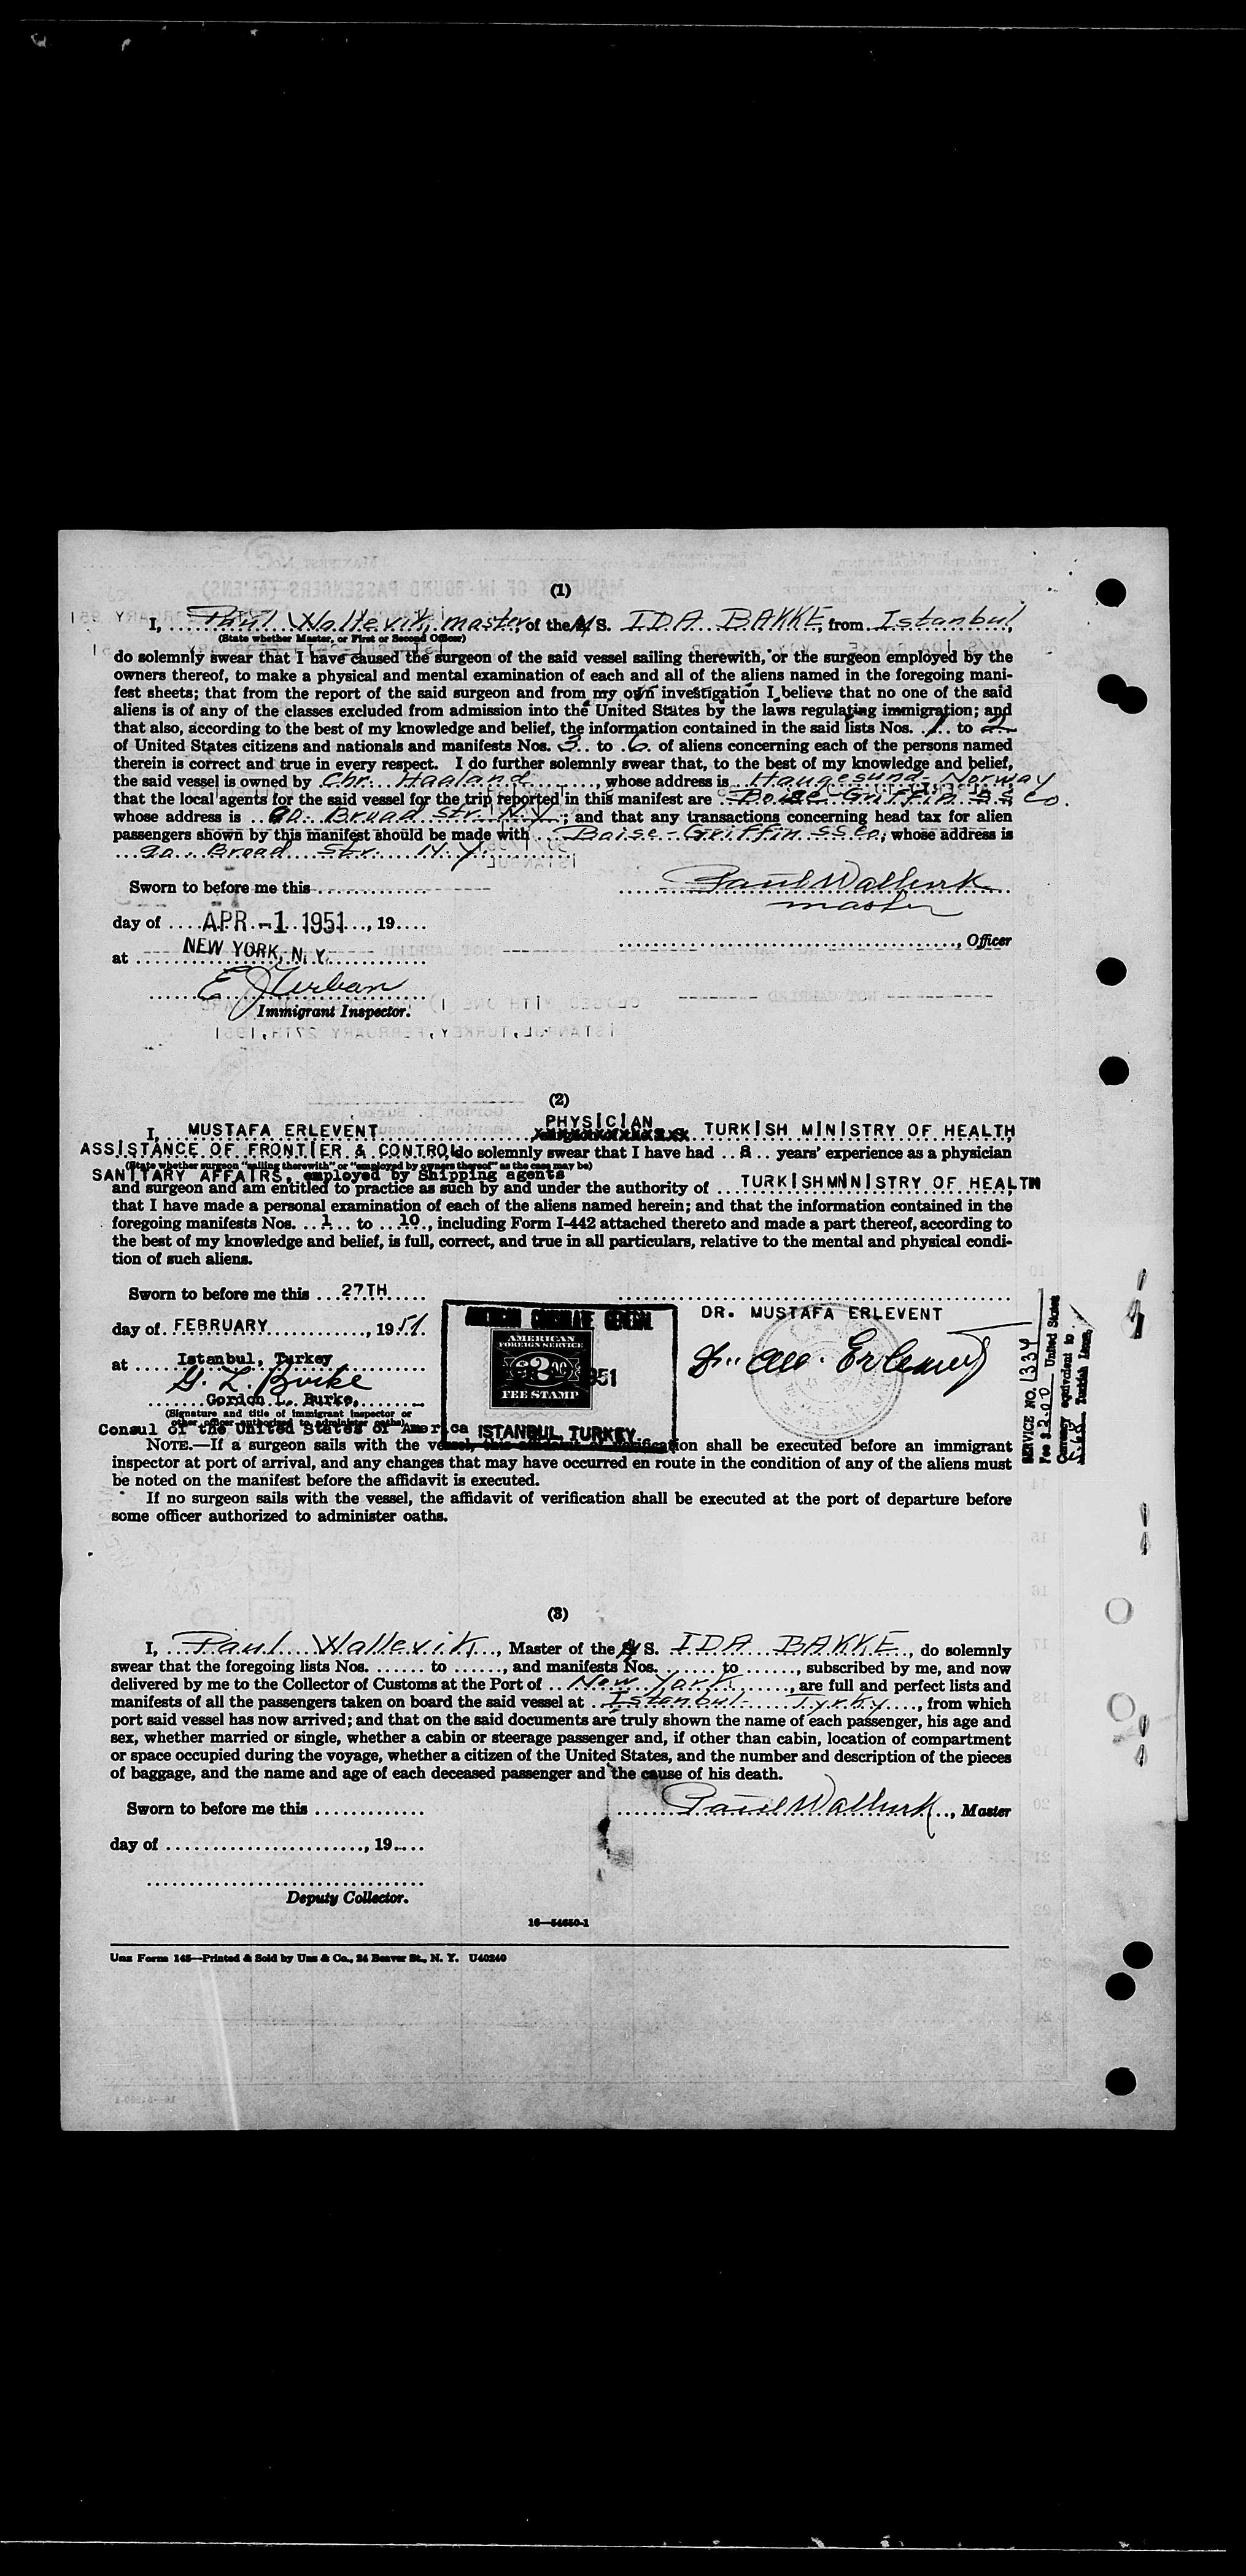 (1)
I, Paul Wallevik, master, of the M/S. IDA BAKKE, from Istanbul,
(State whether Master, or First or Second Officer)
do solemnly swear that I have caused the surgeon of the said vessel sailing therewith, or the surgeon employed by the
owners thereof, to make a physical and mental examination of each and all of the aliens named in the foregoing mani-
fest sheets; that from the report of the said surgeon and from my own investigation I believe that no one of the said
aliens is of any of the classes excluded from admission into the United States by the laws regulating immigration; and
that also, according to the best of my knowledge and belief, the information contained in the said lists Nos. 1 to 2
of United States citizens and nationals and manifests Nos. 3 to 6 of aliens concerning each of the persons named
therein is correct and true in every respect. I do further solemnly swear that, to the best of my knowledge and belief,
the said vessel is owned by Chr. Haaland, whose address is Haugesund - Norway
that the local agents for the said vessel for the trip reported in this manifest are Boise Griffin S.S. Co.
whose address is 90 Broad Str. N.Y.; and that any transactions concerning head tax for alien
passengers shown by this manifest should be made with Boise - Griffin SS Co, whose address is
90. Broad Str. N.Y.
Sworn to before me this
Paul Wallevik
master
day of APR -1 1951, 19
, Officer
at NEW YORK, N. Y.
E J Urban
Immigrant Inspector.
(2)
PHYSICIAN
I, MUSTAFA ERLEVENT TURKISH MINISTRY OF HEALTH
ASSISTANCE OF FRONTIER & CONTROL do solemnly swear that I have had 8 years' experience as a physician
(State whether surgeon "sailing therewith" or "employed by owners thereof" as the case may be)
SANITARY AFFAIRS, employed by Shipping agents
and surgeon and am entitled to practice as such by and under the authority of TURKISHMINISTRY OF HEALTH
that I have made a personal examination of each of the aliens named herein; and that the information contained in the
foregoing manifests Nos. 1 to 10, including Form I-442 attached thereto and made a part thereof, according to
the best of my knowledge and belief, is full, correct, and true in all particulars, relative to the mental and physical condi-
tion of such aliens.
Sworn to before me this 27TH
DR. MUSTAFA ERLEVENT
day of FEBRUARY, 1951
at Istanbul, Turkey
G. L. Burke
Gordon L. Burke,
(Signature and title of immigrant inspector or
other officer authorized to administer oaths)
Consul of the United States of America
AMERICAN CONSULATE GENERAL
AMERICAN
FOREIGN SERVICE
$2.00
FEE STAMP
ISTANBUL, TURKEY
SERVICE NO. 1334
Fee $2.00 United States
Currency equivalent to
Turkish Liras,
NOTE.—If a surgeon sails with the vessel, this affidavit of verification shall be executed before an immigrant
inspector at port of arrival, and any changes that may have occurred en route in the condition of any of the aliens must
be noted on the manifest before the affidavit is executed.
If no surgeon sails with the vessel, the affidavit of verification shall be executed at the port of departure before
some officer authorized to administer oaths.
(3)
I, Paul Wallevik, Master of the M/S. IDA BAKKE, do solemnly
swear that the foregoing lists Nos. to , and manifests Nos. to , subscribed by me, and now
delivered by me to the Collector of Customs at the Port of New York, are full and perfect lists and
manifests of all the passengers taken on board the said vessel at Istanbul - Tyrky, from which
port said vessel has now arrived; and that on the said documents are truly shown the name of each passenger, his age and
sex, whether married or single, whether a cabin or steerage passenger and, if other than cabin, location of compartment
or space occupied during the voyage, whether a citizen of the United States, and the number and description of the pieces
of baggage, and the name and age of each deceased passenger and the cause of his death.
Sworn to before me this
Paul Wallevik, Master
day of , 19
Deputy Collector.
16—54650-1
Unz Form 145—Printed & Sold by Unz & Co., 24 Beaver St., N. Y. U40240